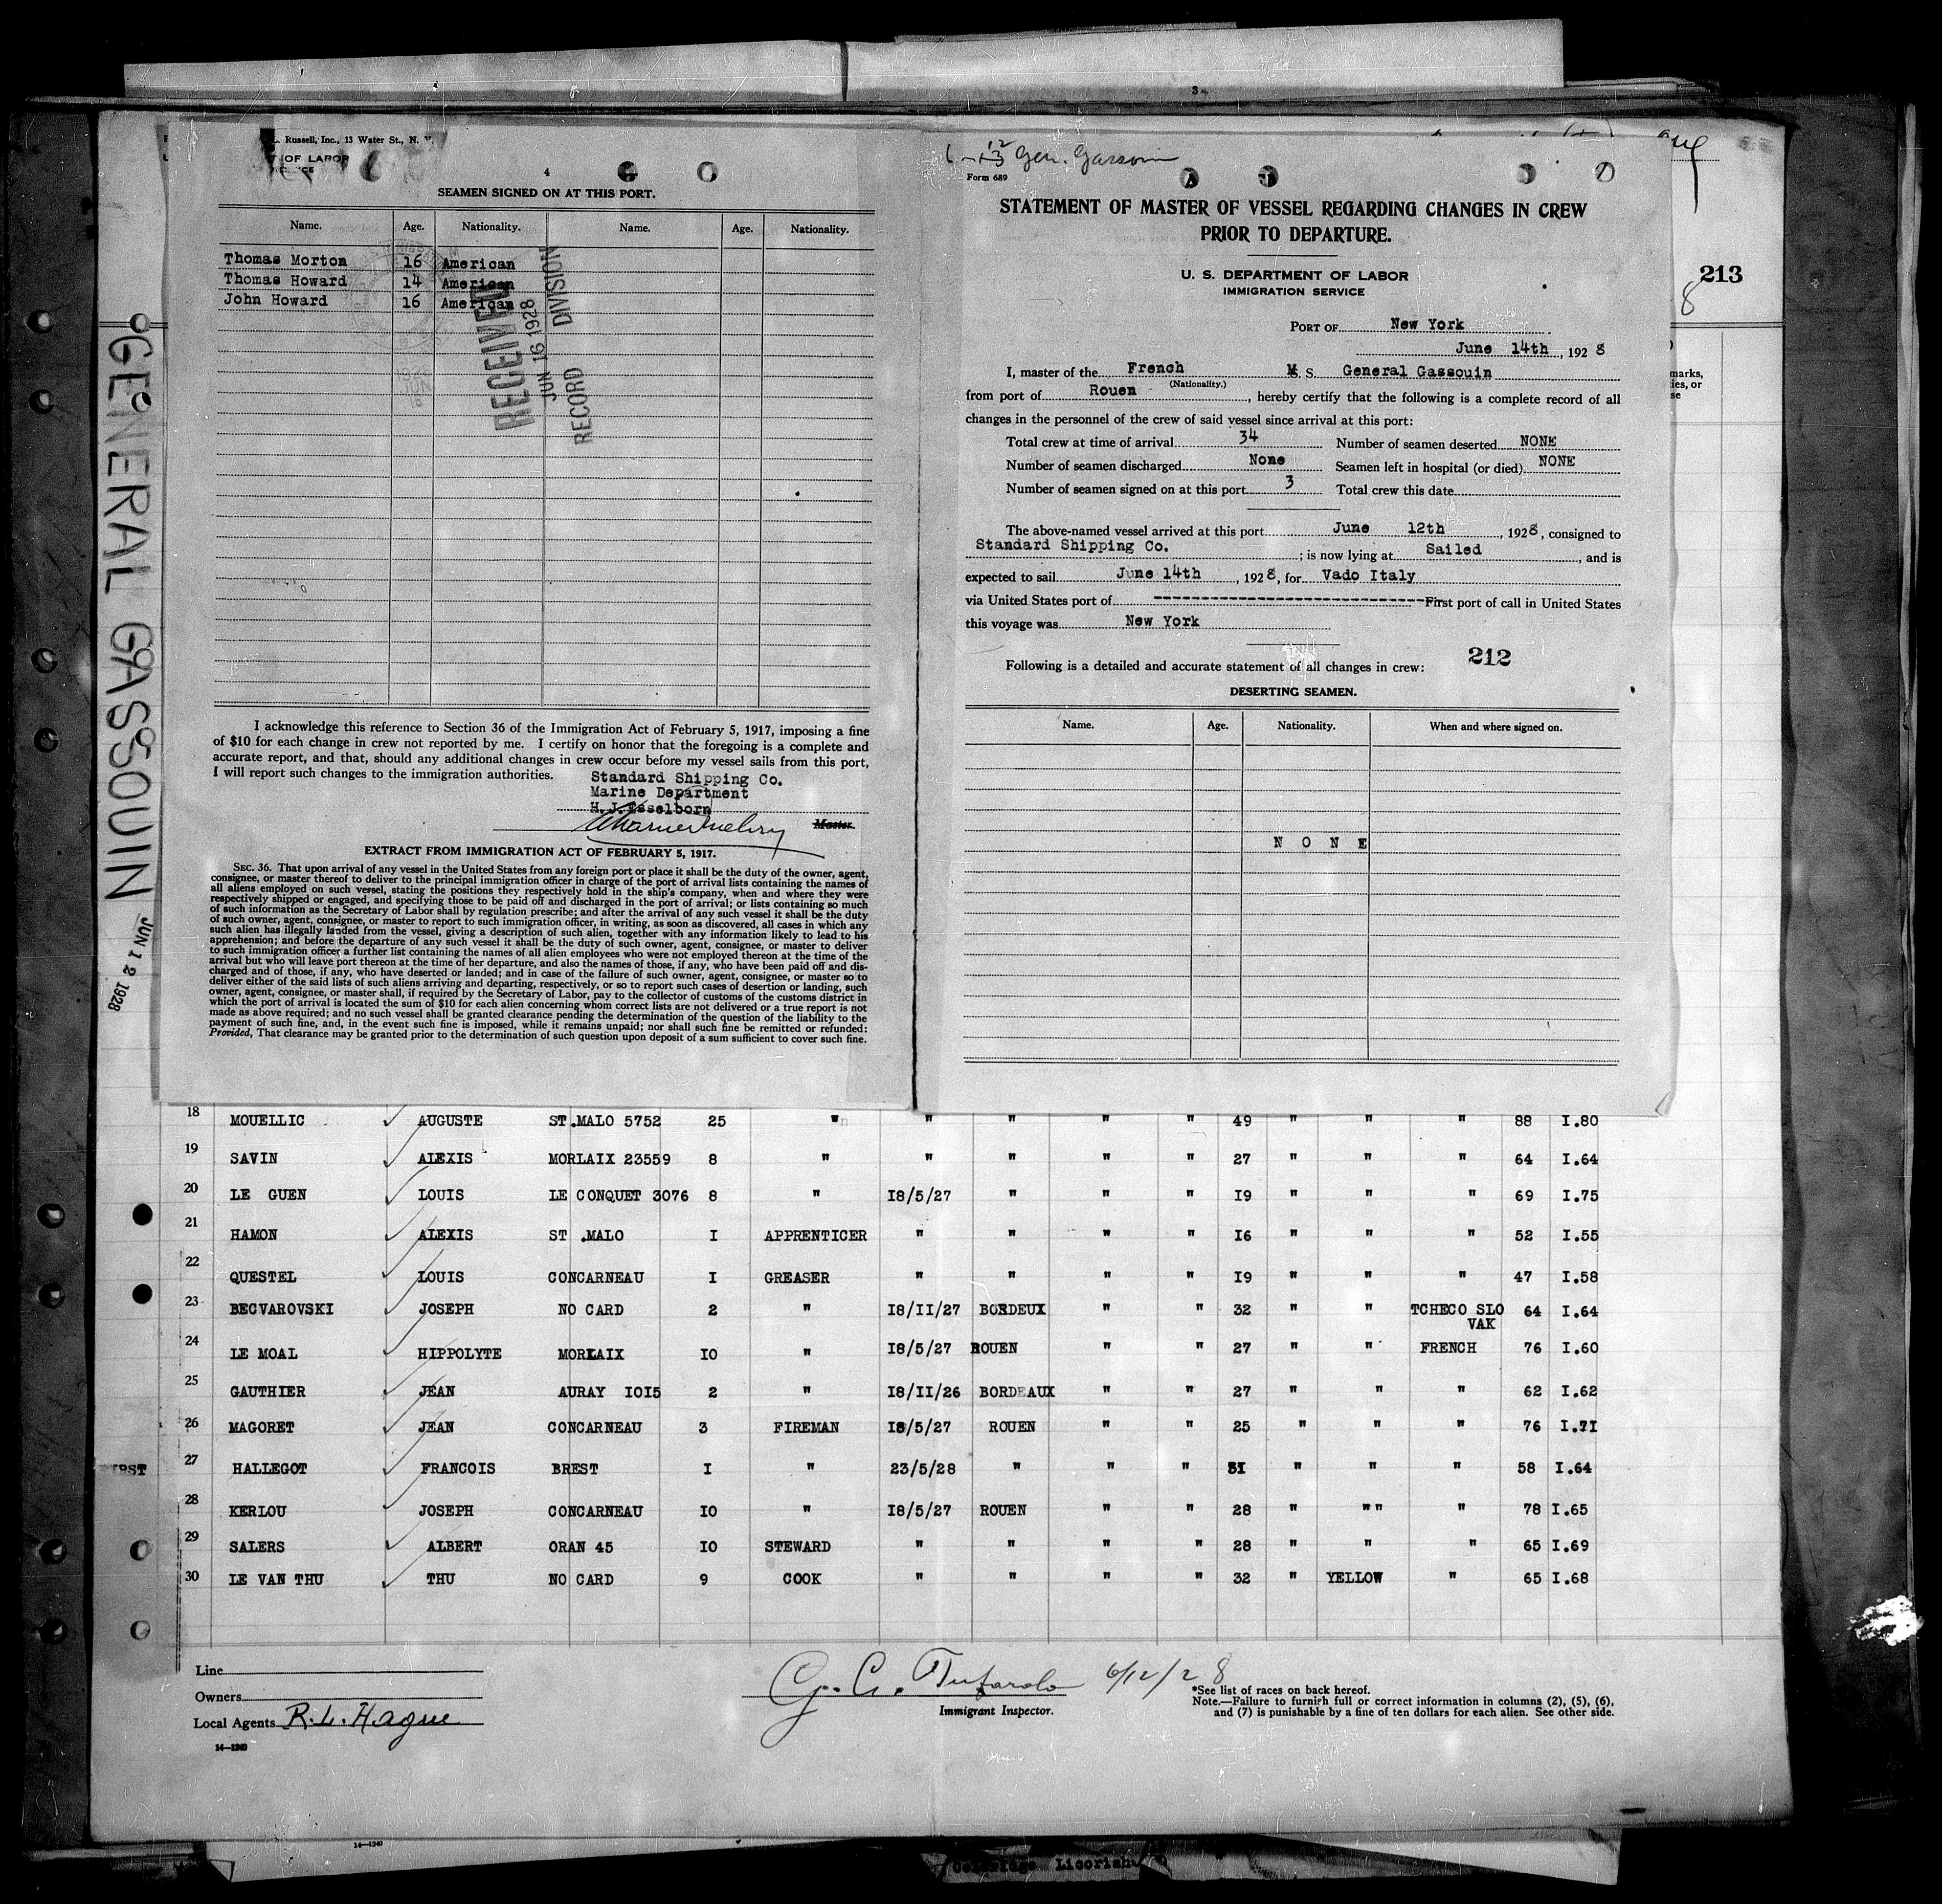 GENERAL GASSOUIN
JUN 12 1928
L. Russell, Inc., 13 Water St., N. Y.
T OF LABOR
4
SEAMEN SIGNED ON AT THIS PORT.
Name. Age. Nationality. Name. Age. Nationality.
Thomas Morton 16 American
Thomas Howard 14 American
John Howard 16 American
RECEIVED
JUN 16 1928
RECORD DIVISION
I acknowledge this reference to Section 36 of the Immigration Act of February 5, 1917, imposing a fine
of $10 for each change in crew not reported by me. I certify on honor that the foregoing is a complete and
accurate report, and that, should any additional changes in crew occur before my vessel sails from this port,
I will report such changes to the immigration authorities.
Standard Shipping Co.
Marine Department
H. J. Esselborn
Master.
EXTRACT FROM IMMIGRATION ACT OF FEBRUARY 5, 1917.
SEC. 36. That upon arrival of any vessel in the United States from any foreign port or place it shall be the duty of the owner, agent,
consignee, or master thereof to deliver to the principal immigration officer in charge of the port of arrival lists containing the names of
all aliens employed on such vessel, stating the positions they respectively hold in the ship's company, when and where they were
respectively shipped or engaged, and specifying those to be paid off and discharged in the port of arrival; or lists containing so much
of such information as the Secretary of Labor shall by regulation prescribe; and after the arrival of any such vessel it shall be the duty
of such owner, agent, consignee, or master to report to such immigration officer, in writing, as soon as discovered, all cases in which any
such alien has illegally landed from the vessel, giving a description of such alien, together with any information likely to lead to his
apprehension; and before the departure of any such vessel it shall be the duty of such owner, agent, consignee, or master to deliver
to such immigration officer a further list containing the names of all alien employees who were not employed thereon at the time of the
arrival but who will leave port thereon at the time of her departure, and also the names of those, if any, who have been paid off and dis-
charged and of those, if any, who have deserted or landed; and in case of the failure of such owner, agent, consignee, or master so to
deliver either of the said lists of such aliens arriving and departing, respectively, or so to report such cases of desertion or landing, such
owner, agent, consignee, or master shall, if required by the Secretary of Labor, pay to the collector of customs of the customs district in
which the port of arrival is located the sum of $10 for each alien concerning whom correct lists are not delivered or a true report is not
made as above required; and no such vessel shall be granted clearance pending the determination of the question of the liability to the
payment of such fine, and, in the event such fine is imposed, while it remains unpaid; nor shall such fine be remitted or refunded:
Provided, That clearance may be granted prior to the determination of such question upon deposit of a sum sufficient to cover such fine.
Gen. Gassouin
Form 689
STATEMENT OF MASTER OF VESSEL REGARDING CHANGES IN CREW
PRIOR TO DEPARTURE.
U. S. DEPARTMENT OF LABOR
IMMIGRATION SERVICE
213
8
PORT OF New York
June 14th, 1928
I, master of the French M. S. General Gassouin
(Nationality.)
from port of Rouen, hereby certify that the following is a complete record of all
changes in the personnel of the crew of said vessel since arrival at this port:
Total crew at time of arrival 34 Number of seamen deserted NONE
Number of seamen discharged None Seamen left in hospital (or died) NONE
Number of seamen signed on at this port 3 Total crew this date
The above-named vessel arrived at this port June 12th, 1928, consigned to
Standard Shipping Co.; is now lying at Sailed, and is
expected to sail June 14th, 1928, for Vado Italy
via United States port of First port of call in United States
this voyage was New York
212
Following is a detailed and accurate statement of all changes in crew:
DESERTING SEAMEN.
Name. Age. Nationality. When and where signed on.
N O N E
18 MOUELLIC AUGUSTE ST.MALO 5752 25 " " " " " 49 " " " 88 I.80
19 SAVIN ALEXIS MORLAIX 23559 8 " " " " " 27 " " " 64 I.64
20 LE GUEN LOUIS LE CONQUET 3076 8 " I8/5/27 " " " I9 " " " 69 I.75
21 HAMON ALEXIS ST .MALO I APPRENTICER " " " " I6 " " " 52 I.55
22 QUESTEL LOUIS CONCARNEAU I GREASER " " " " I9 " " " 47 I.58
23 BECVAROVSKI JOSEPH NO CARD 2 " I8/II/27 BORDEUX " " 32 " " TCHECO SLO 64 I.64
VAK
24 LE MOAL HIPPOLYTE MORLAIX IO " I8/5/27 ROUEN " " 27 " " FRENCH 76 I.60
25 GAUTHIER JEAN AURAY IOI5 2 " I8/II/26 BORDEAUX " " 27 " " " 62 I.62
26 MAGORET JEAN CONCARNEAU 3 FIREMAN I8/5/27 ROUEN " " 25 " " " 76 I.7I
27 HALLEGOT FRANCOIS BREST I " 23/5/28 " " " 3I " " " 58 I.64
28 KERLOU JOSEPH CONCARNEAU IO " I8/5/27 ROUEN " " 28 " "" " 78 I.65
29 SALERS ALBERT ORAN 45 IO STEWARD " " " " 28 " " " 65 I.69
30 LE VAN THU THU NO CARD 9 COOK " " " " 32 " YELLOW " 65 I.68
Line
Owners
Local Agents R. L. Hague
14—1240
6/12/28
Immigrant Inspector.
*See list of races on back hereof.
Note.—Failure to furnish full or correct information in columns (2), (5), (6),
and (7) is punishable by a fine of ten dollars for each alien. See other side.
14—1240
Licorish